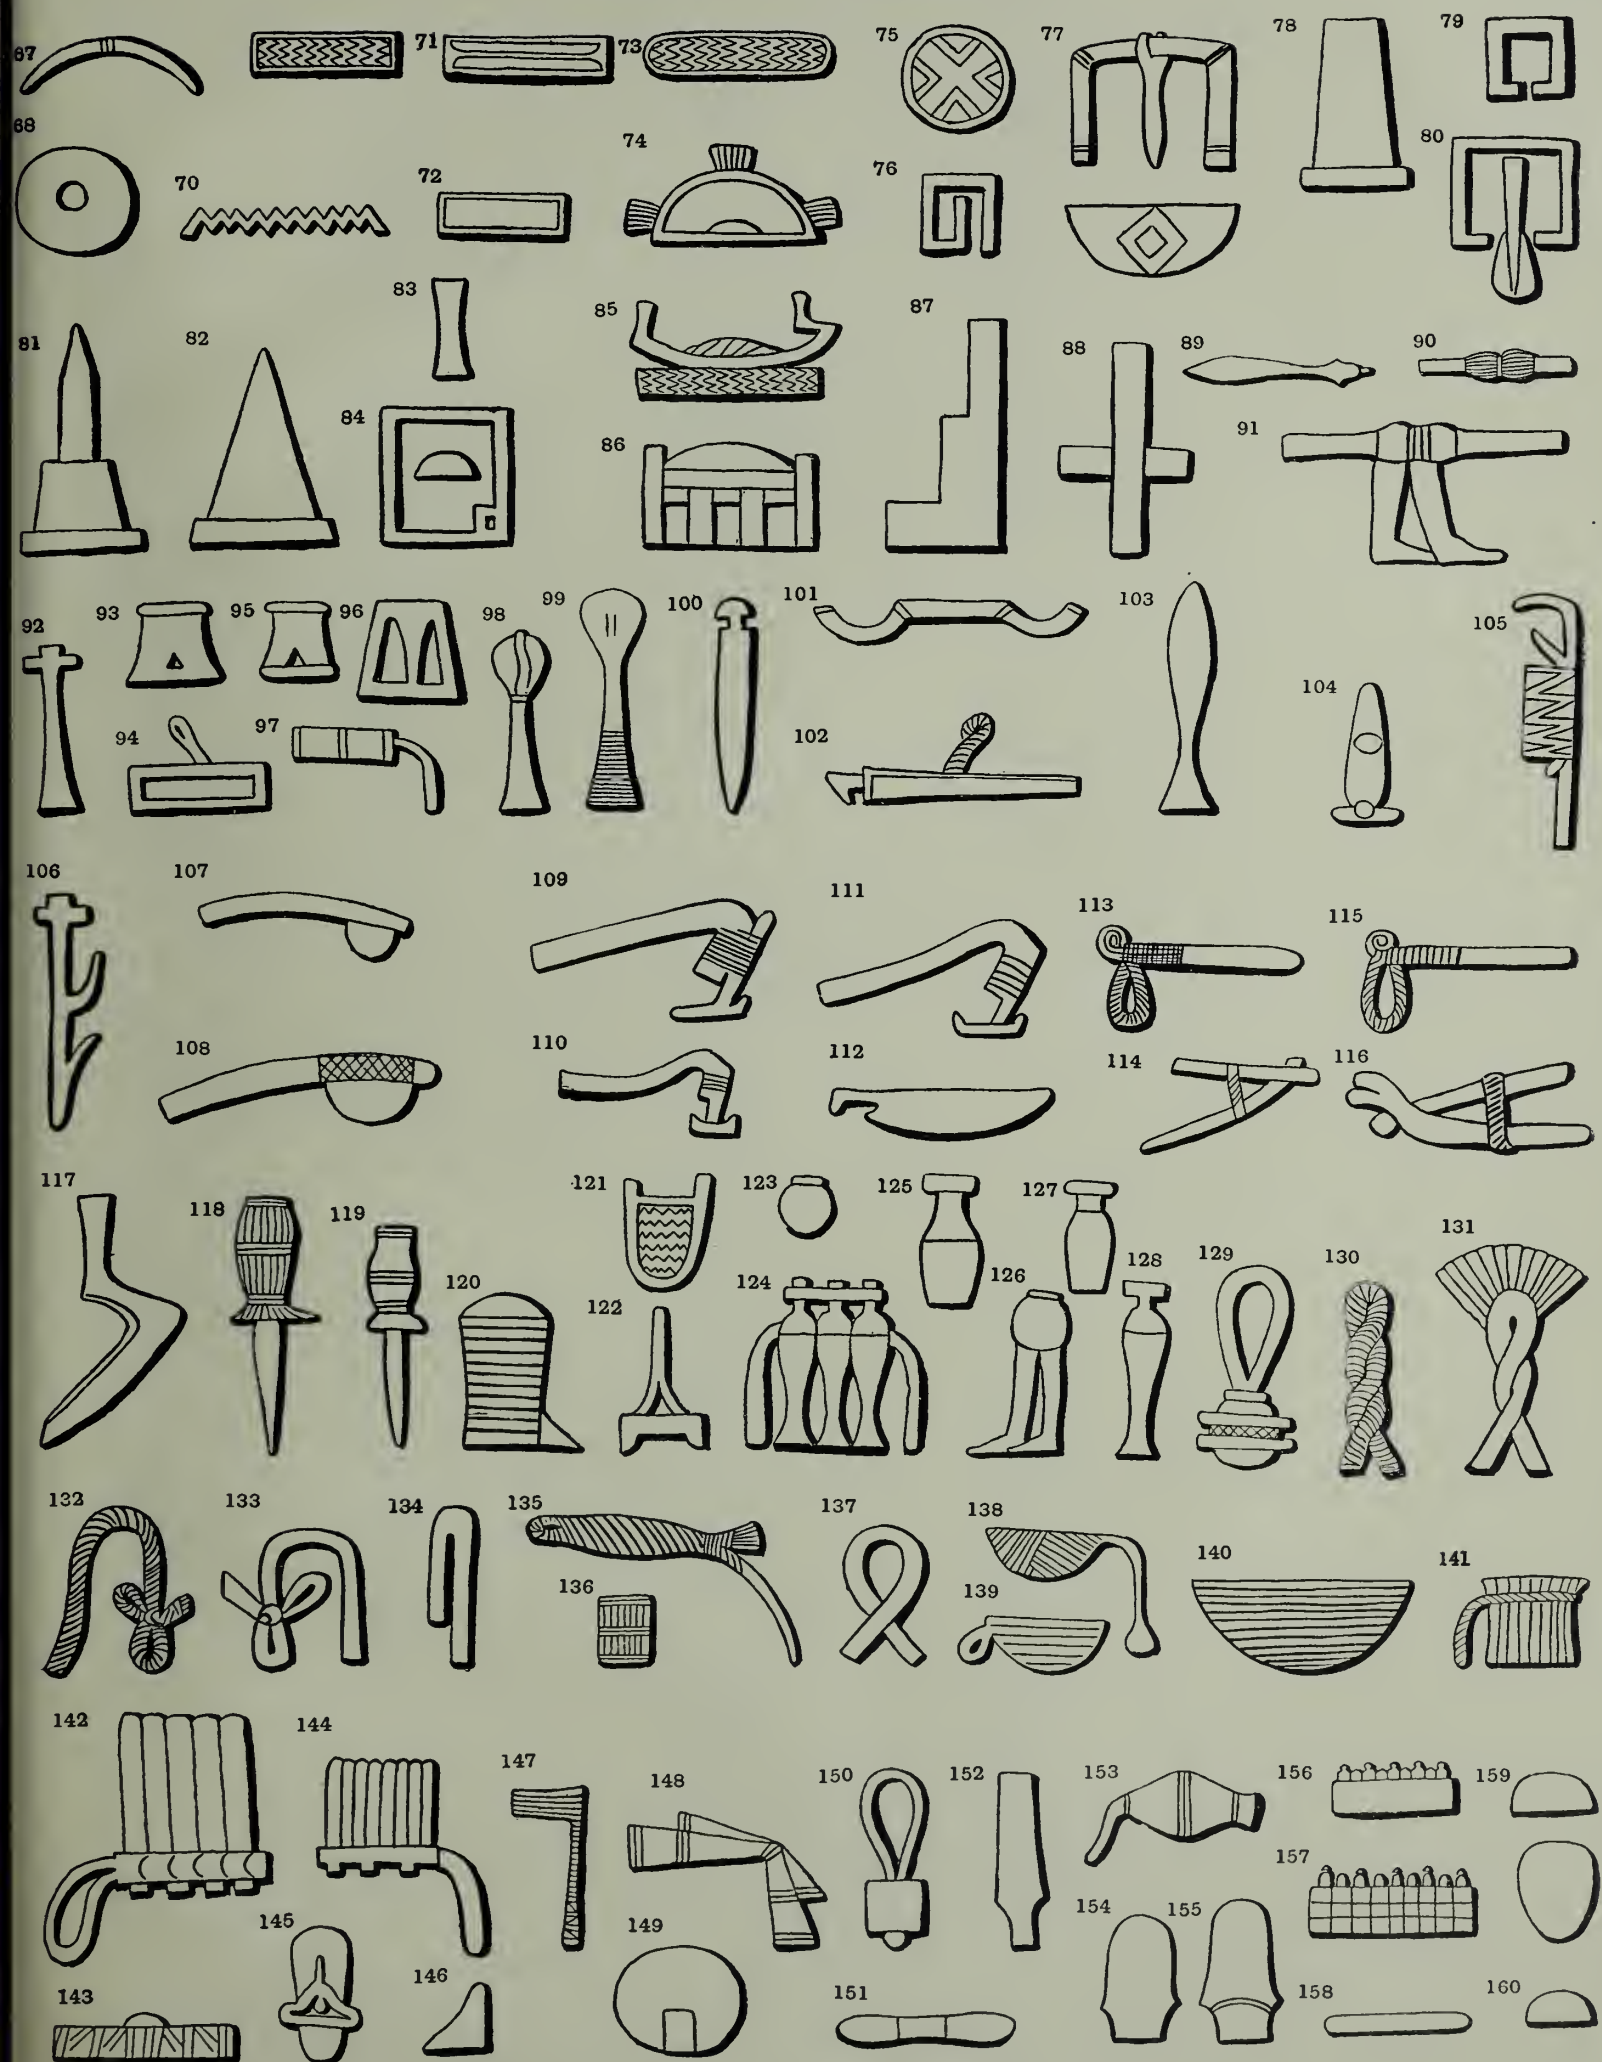 67
71
73
75
77
78
79
68
70
72
74
76
80
81
82
83
84
85
86
87
88
89
90
91
92
93
94
95
96
97
98
99
100
101
102
103
104
105
106
107
108
109
110
111
112
113
114
115
116
117
118
119
120
121
122
123
124
125
126
127
128
129
130
131
132
133
134
135
136
137
138
139
140
141
142
143
144
145
146
147
148
149
150
151
152
153
154
155
156
157
158
159
160